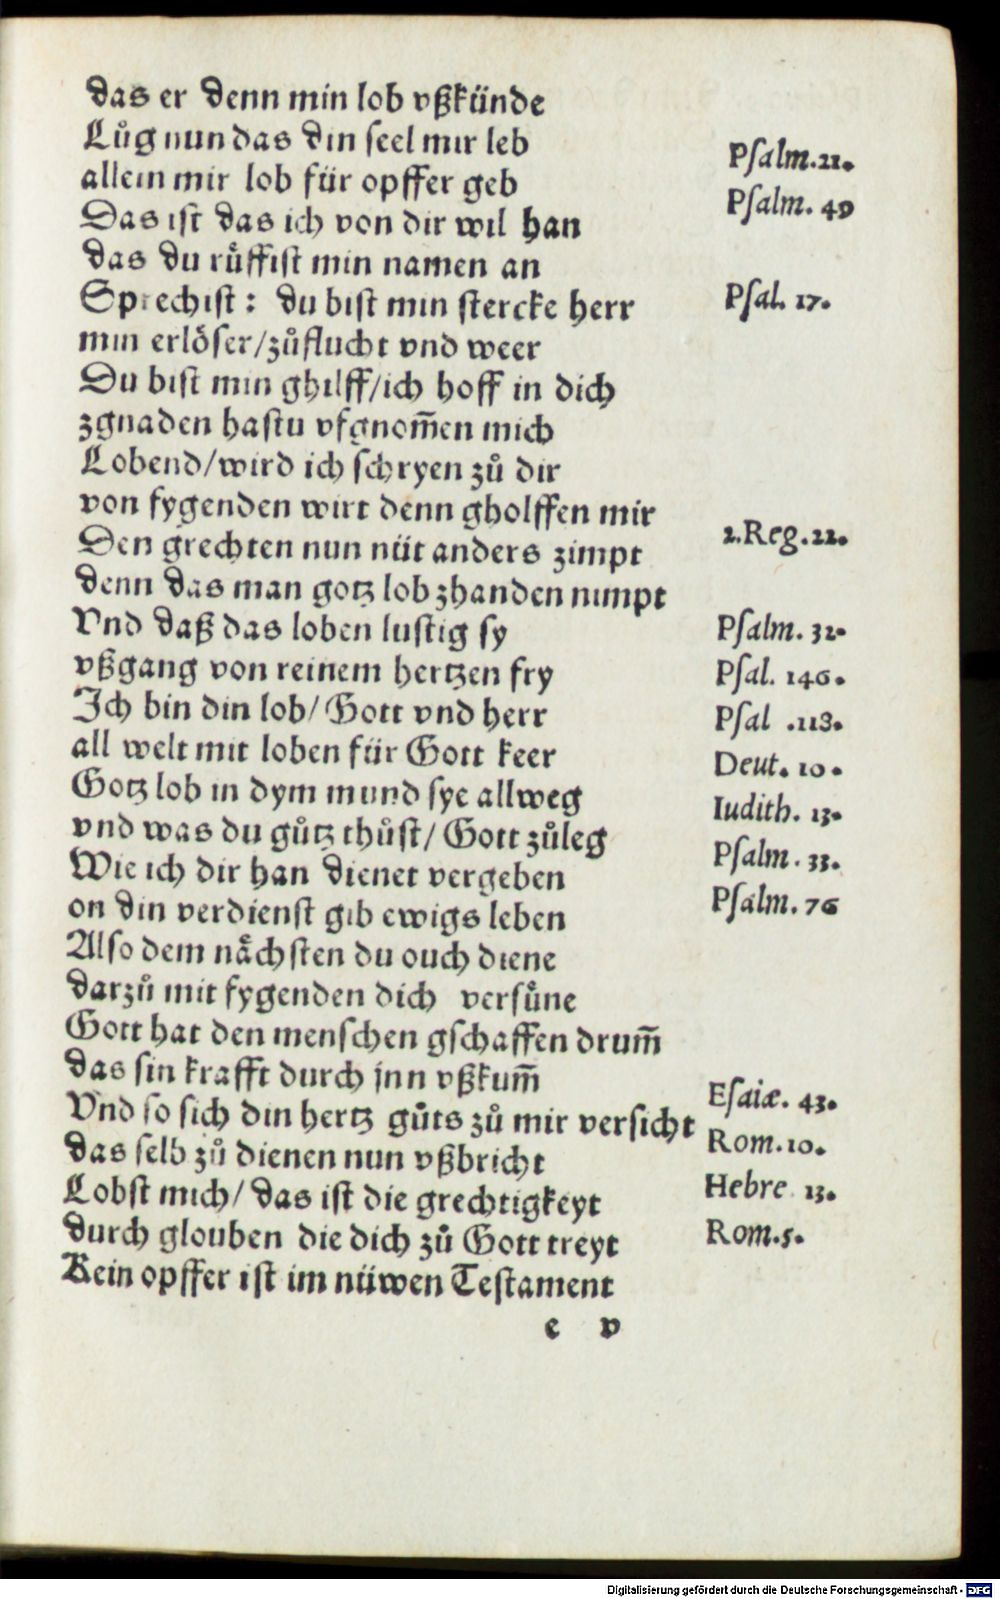 das er denn min lob vßkünde
Lůg nun das din seel mir leb
allein mir lob für opffer geb
Psalm.21.
Das ist das ich von dir wil han
Psalm. 49
das du růffist min namen an
Sprechist: du bist min stercke herr
Psal. 17.
min erlöser/zůflucht vnd weer
Du bist min ghilff/ich hoff in dich
zgnaden hastu vfgnom̄en mich
Lobend/wird ich schryen zů dir
von fygenden wirt denn gholffen mir
Den grechten nun nüt anders zimpt
2.Reg.22.
denn das man gotz lob zhanden nimpt
Vnd daß das loben lustig sy
Psalm. 32.
vßgang von reinem hertzen fry
Psal. 146.
Ich bin din lob/ Gott vnd herr
Psal .118.
all welt mit loben für Gott keer
Deut. 10.
Gotz lob in dym mund sye allweg
Iudith. 13.
vnd was du gůtz thůst/ Gott zůleg
Wie ich dir han dienet vergeben
Psalm. 33.
on din verdienst gib ewigs leben
Psalm. 76
Also dem nächsten du ouch diene
darzů mit fygenden dich versůne
Gott hat den menschen gschaffen drum̄
das sin krafft durch jnn vßkum̄
Vnd so sich din hertz gůts zů mir versicht
Esaiæ. 43.
das selb zů dienen nun vßbricht
Rom.10.
Lobst mich/ das ist die grechtigkeyt
Hebre 13.
durch glouben die dich zů Gott treyt
Rom.5.
Kein opffer ist im nüwen Testament
e v
Digitalisierung gefördert durch die Deutsche Forschungsgemeinschaft - DFG